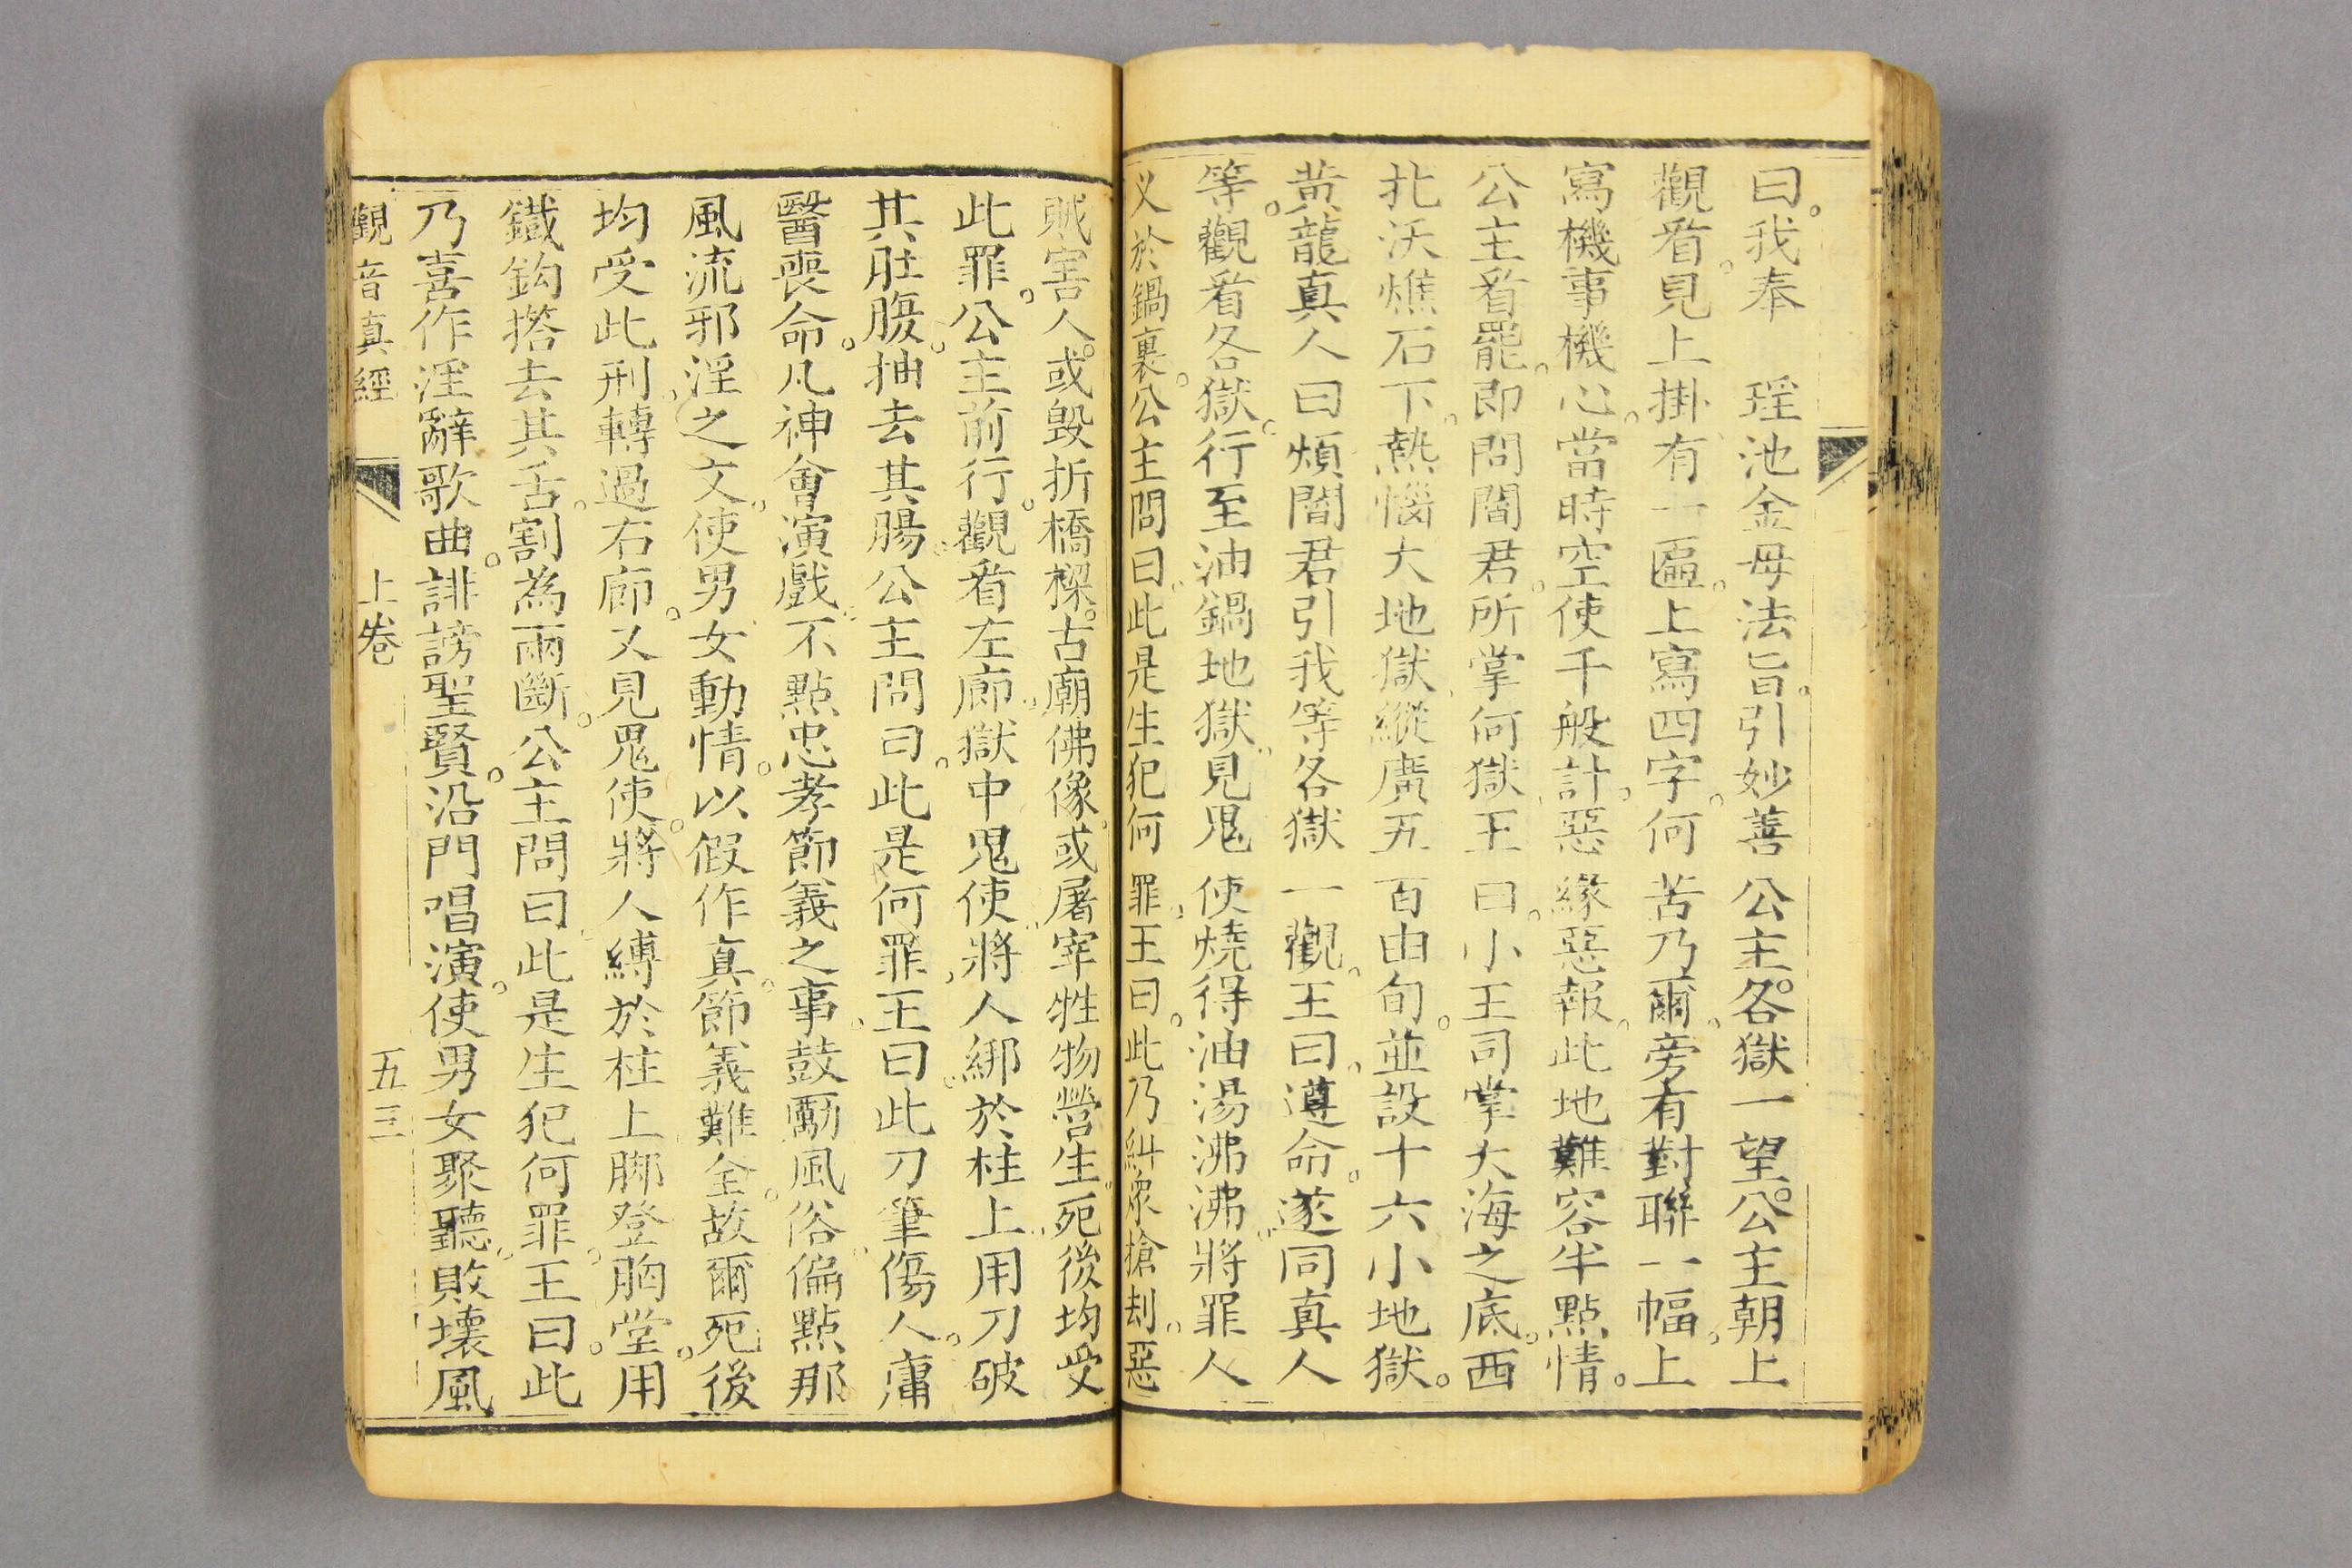 曰。我奉　瑶池金母法旨。引妙善公主。各獄一望。公主朝上
觀看。見上掛有一匾。上寫四字。何苦乃爾。旁有對聯一幅。上
寫機事機心。當時空使千般計。惡緣惡報。此地難容半點情。
公主看罷。即問閻君。所掌何獄。王曰。小王司掌大海之底。西
北沃燋石下。熱惱大地獄。縱廣五百由旬。並設十六小地獄。
黃龍真人曰。煩閻君引我等各獄一觀。王曰。遵命。遂同真人
等。觀看各獄。行至油鍋地獄。見鬼使燒得油湯沸沸。將罪人
义於鍋裏。公主問曰。此是生犯何罪。王曰。此乃糾衆搶刦。惡
賊害人。或毀折橋樑。古廟佛像。或屠宰牲物營生。死後均受
此罪。公主前行。觀看左廊。獄中鬼使。將人綁於柱上。用刀破
其肚腹。抽去其腸。公主問曰。此是何罪。王曰。此刀筆傷人。庸
醫喪命。凡神會演戲。不點忠孝節義之事。鼓勵風俗。偏點那
風流邪淫之文。使男女動情。以假作真。節義難全。故爾死後
均受此刑。轉過右廊。又見鬼使。將人縛於柱上。脚登胸堂。用
鐵鈎撘去其舌。割為兩斷。公主問曰。此是生犯何罪。王曰。此
乃喜作淫辭歌曲。誹謗聖賢。沿門唱演。使男女聚聽。敗壞風
觀音真經　上卷　五三